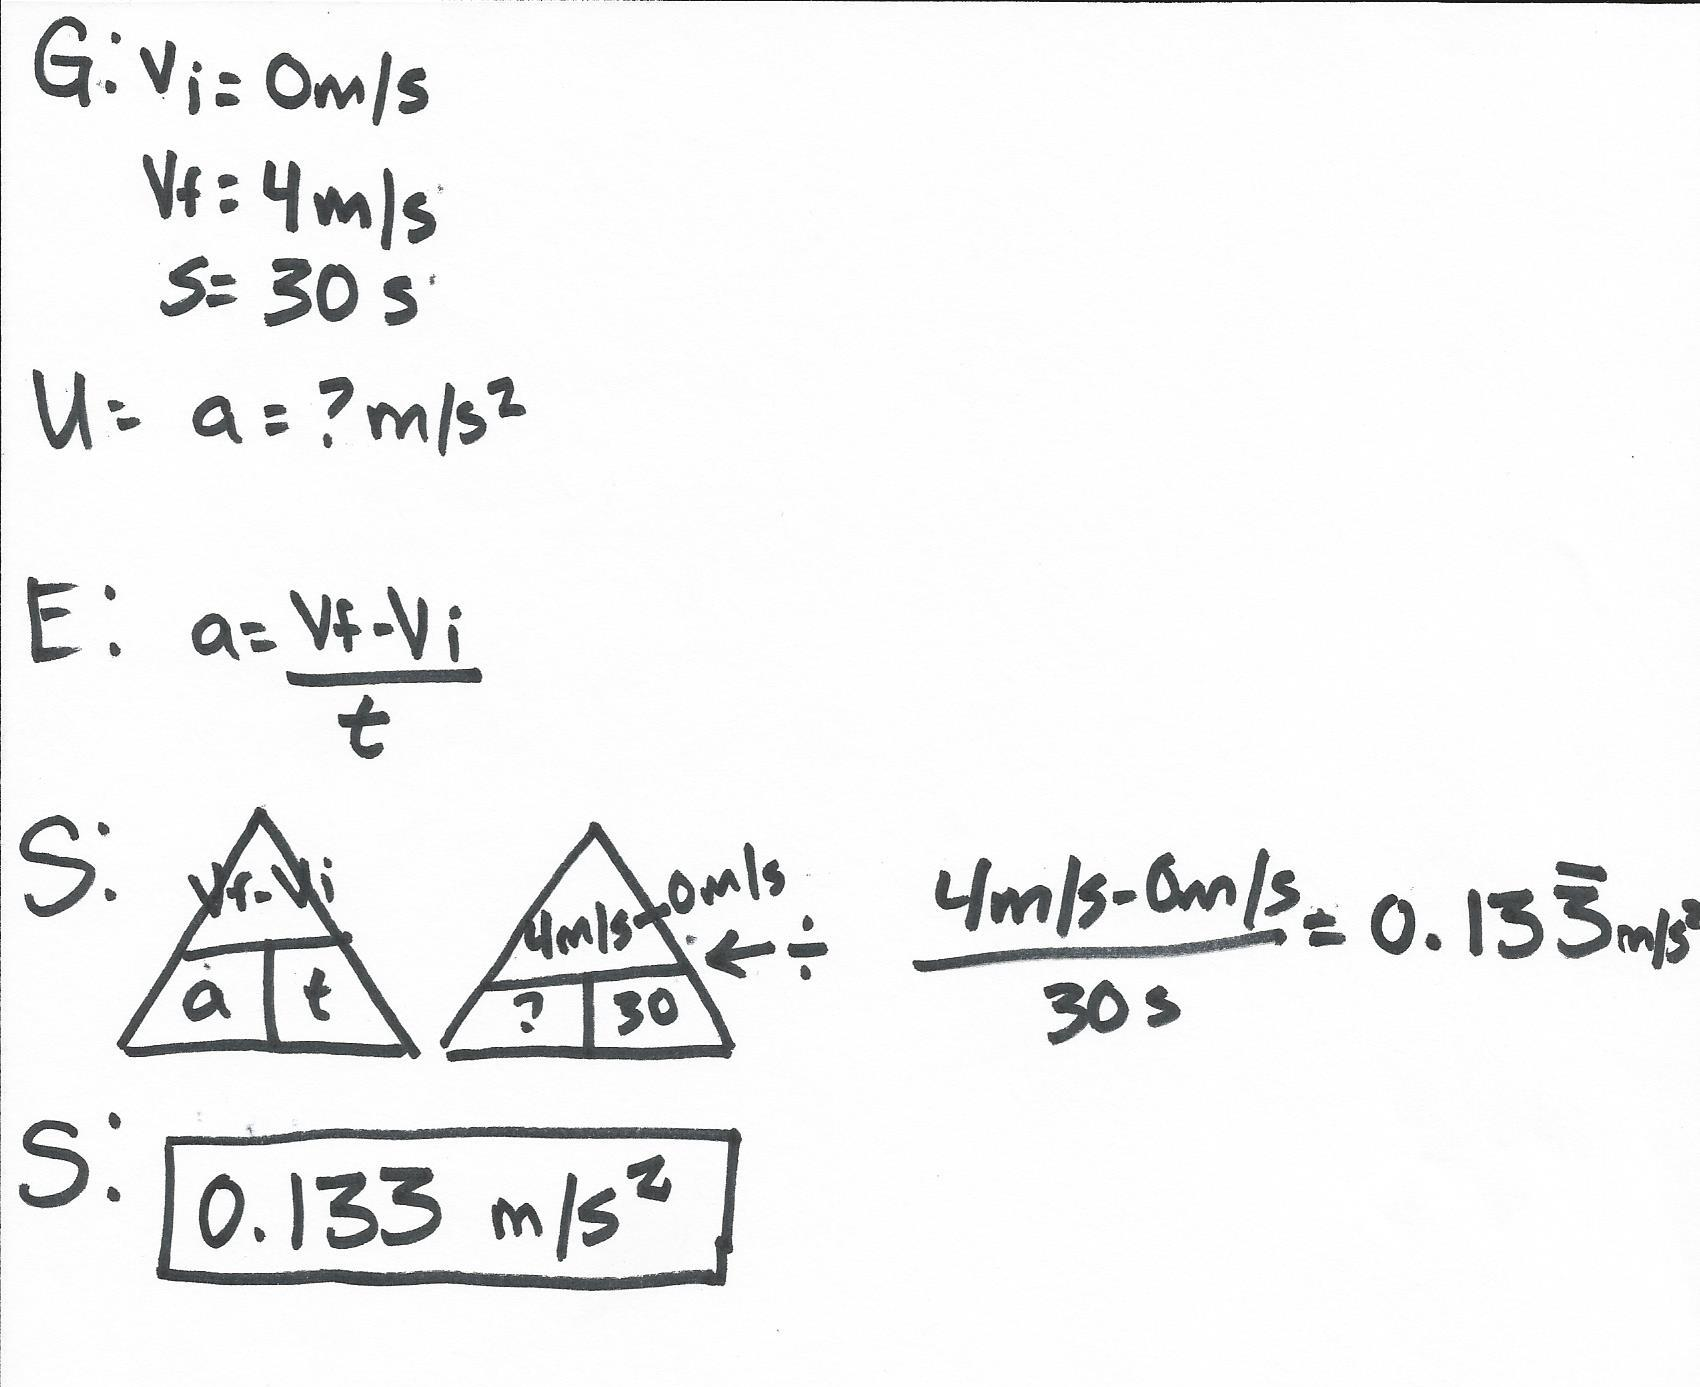 G: Vi= 0m/s
Vf= 4m/s
s= 30 s
U= a=? m/s²
E: a= Vf-Vi
t
S: Vf-Vi
a t
4m/s-0m/s ← ÷
? 30
4m/s-0m/s = 0.133̅ m/s²
30 s
S: 0.133 m/s²